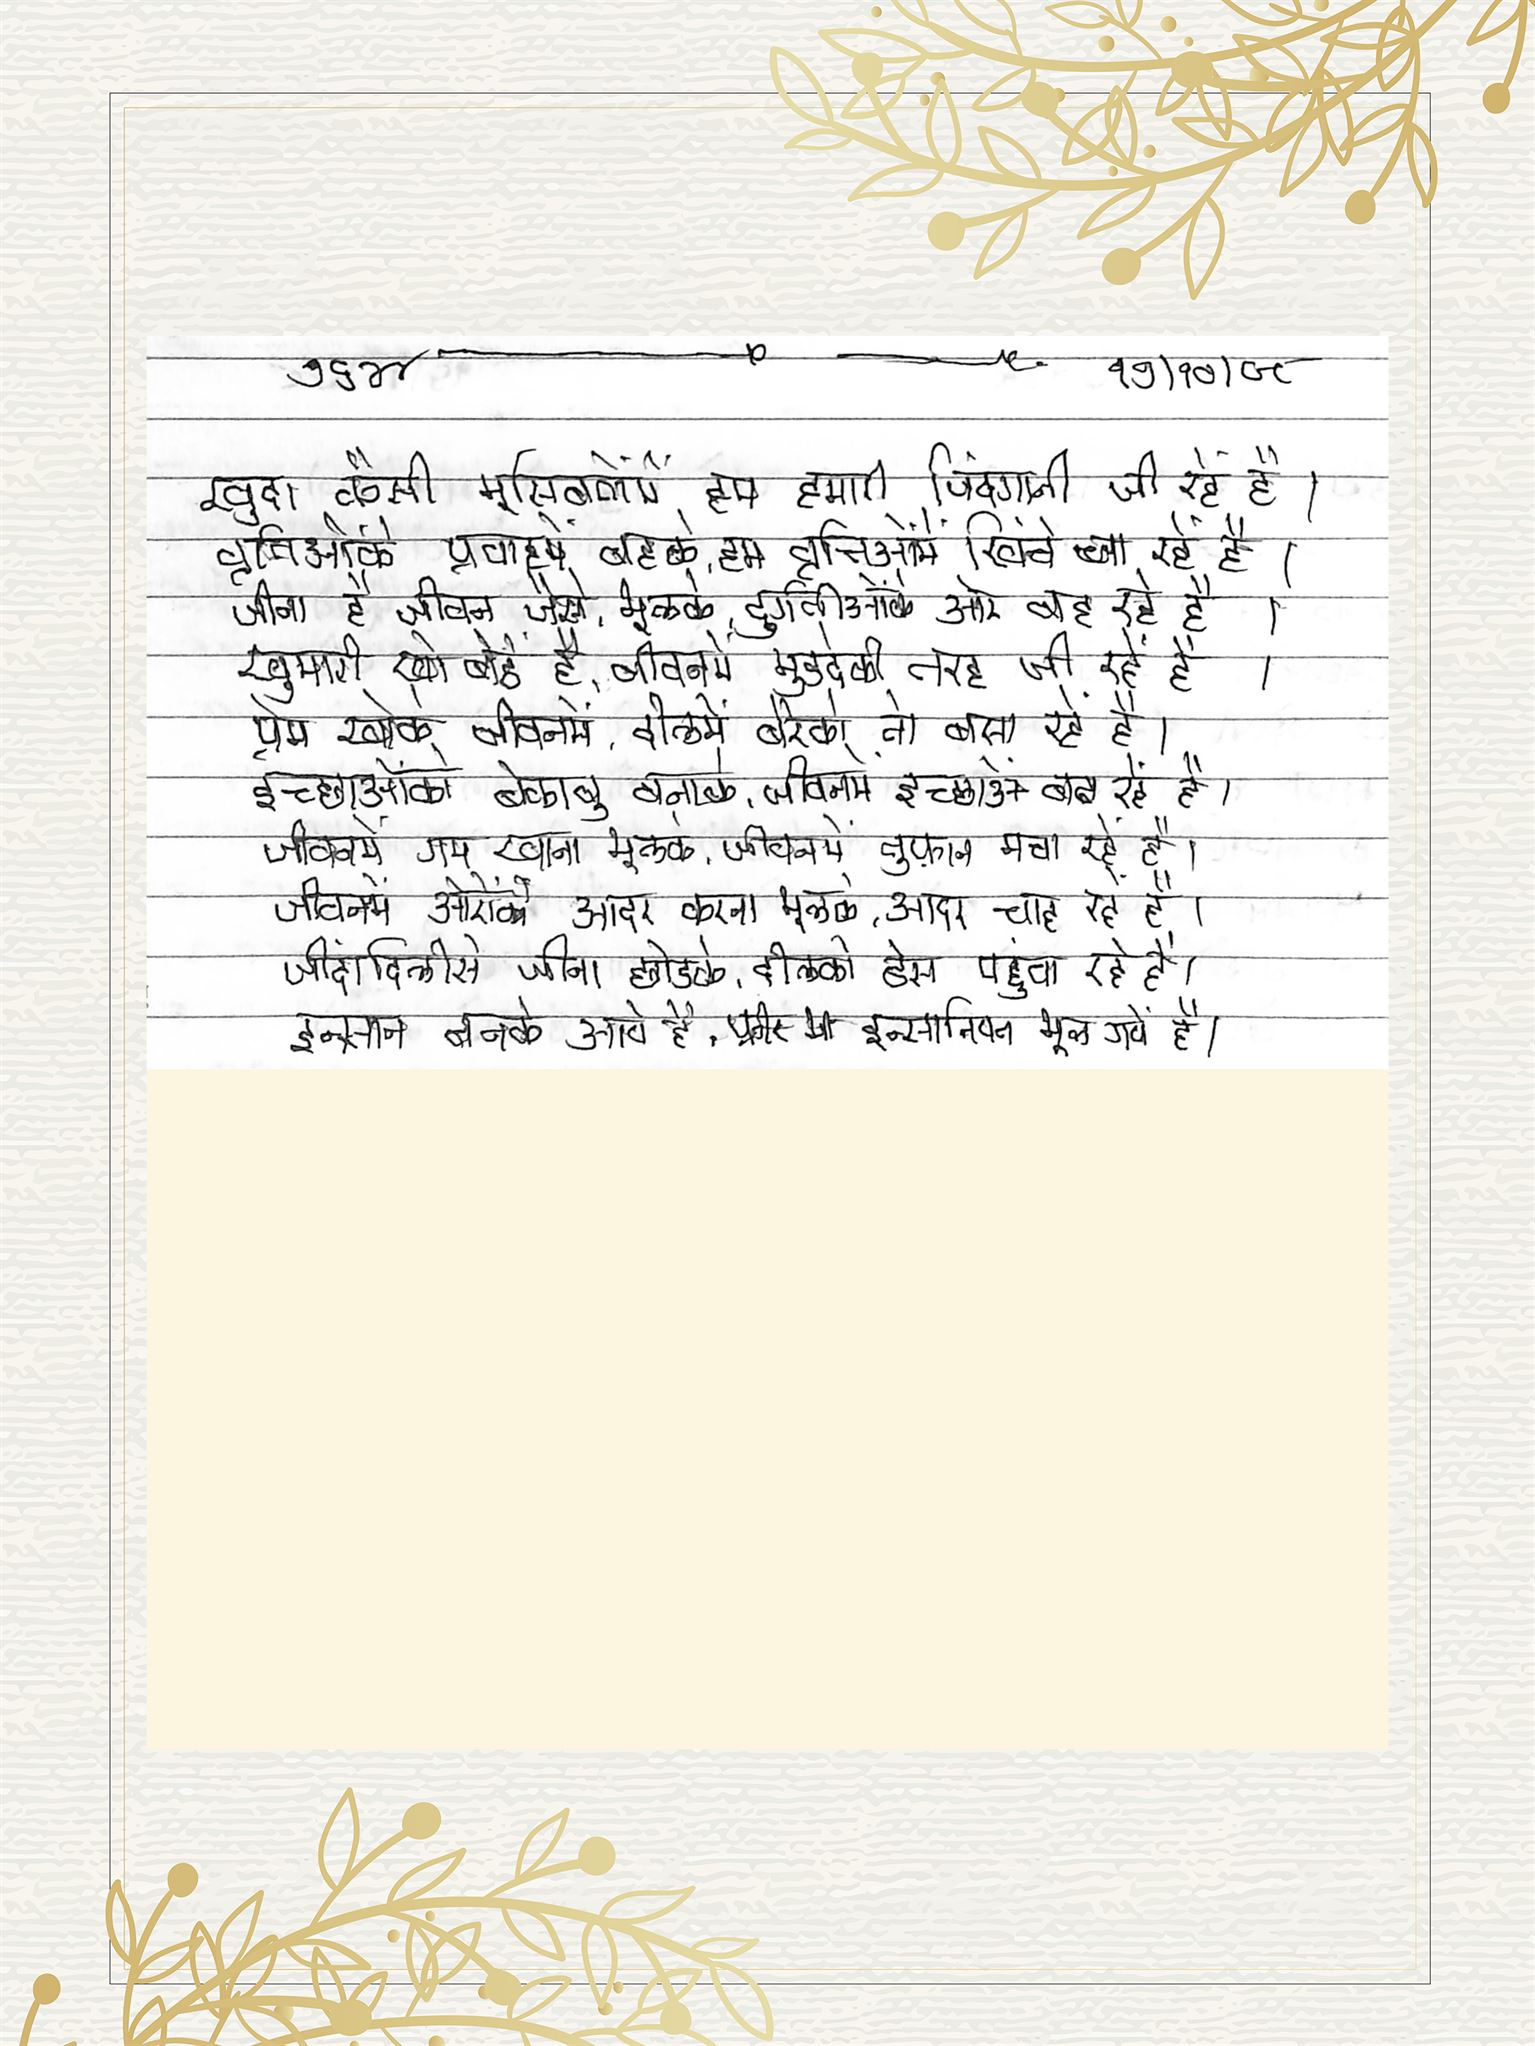 १७/१०/९८
खुदा कैसी मूसिबतोंमें हम हमारी जिंदगानी जी रहें है ।
वृत्तिओंके प्रवाहमें बहके, हम वृत्तिओंमें खिंचे जा रहें है ।
जीना है जीवन जैसे, भूलके, दुर्गतीओंके ओर बह रहे है ।
खुमारी खो बेठे है, जीवनमें मुडदेकी तरह जी रहें है ।
प्रेम खोके जीवनमें, दीलमें बेरको तो बसा रहे है ।
इच्छाओंको बेकाबु बनाके, जीवनमें इच्छाओ रहें है ।
जीवनमें गम खाना भूलके, जीवनमें तुफ़ान मचा रहे है ।
जीवनमें ओरोंके आदर करना भूलके, आदर चाह रहे है ।
जींदादिलीसे जीना छोडके, दीलको ठेस पहुंचा रहे है ।
इन्सान बनके आये है, इन्सानियत भूल गयें है ।